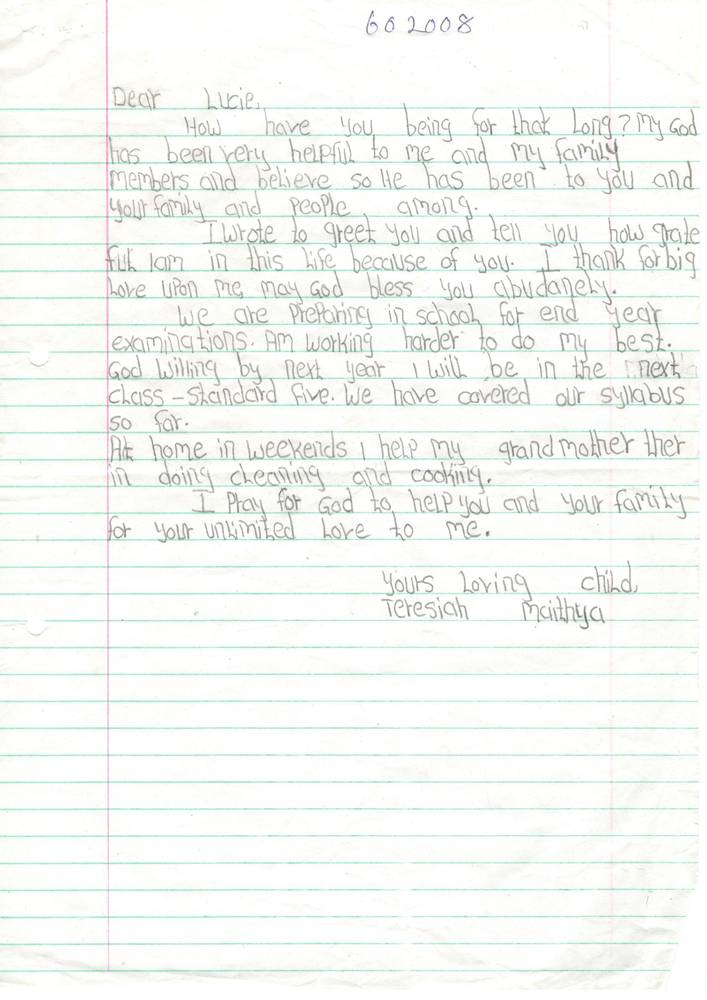 602008
Dear Lucie,
How have you being for that long? My God
has been very helpful to me and my family
members and believe so He has been to you and
your family and people among.
I wrote to greet you and tell you how grate
ful I am in this life because of you. I thank for big
love upon me, may God bless you abudanely.
We are preparing in school for end year
examinations. Am working harder to do my best.
God willing by next year I will be in the next
class - standard five. We have covered our syllabus
so far.
At home in weekends I help my grandmother ther
in doing cleaning and cooking.
I pray for God to help you and your family
for your unlimited love to me.
Yours loving child,
Teresiah Maithya